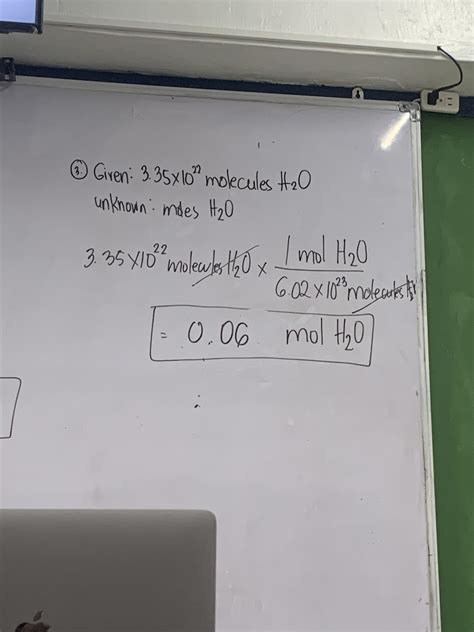 ③ Given: 3.35x10²² molecules H₂O
unknown: moles H₂O
3.35x10²² molecules H₂O x 1 mol H₂O / 6.02 x 10²³ molecules
= 0.06 mol H₂O